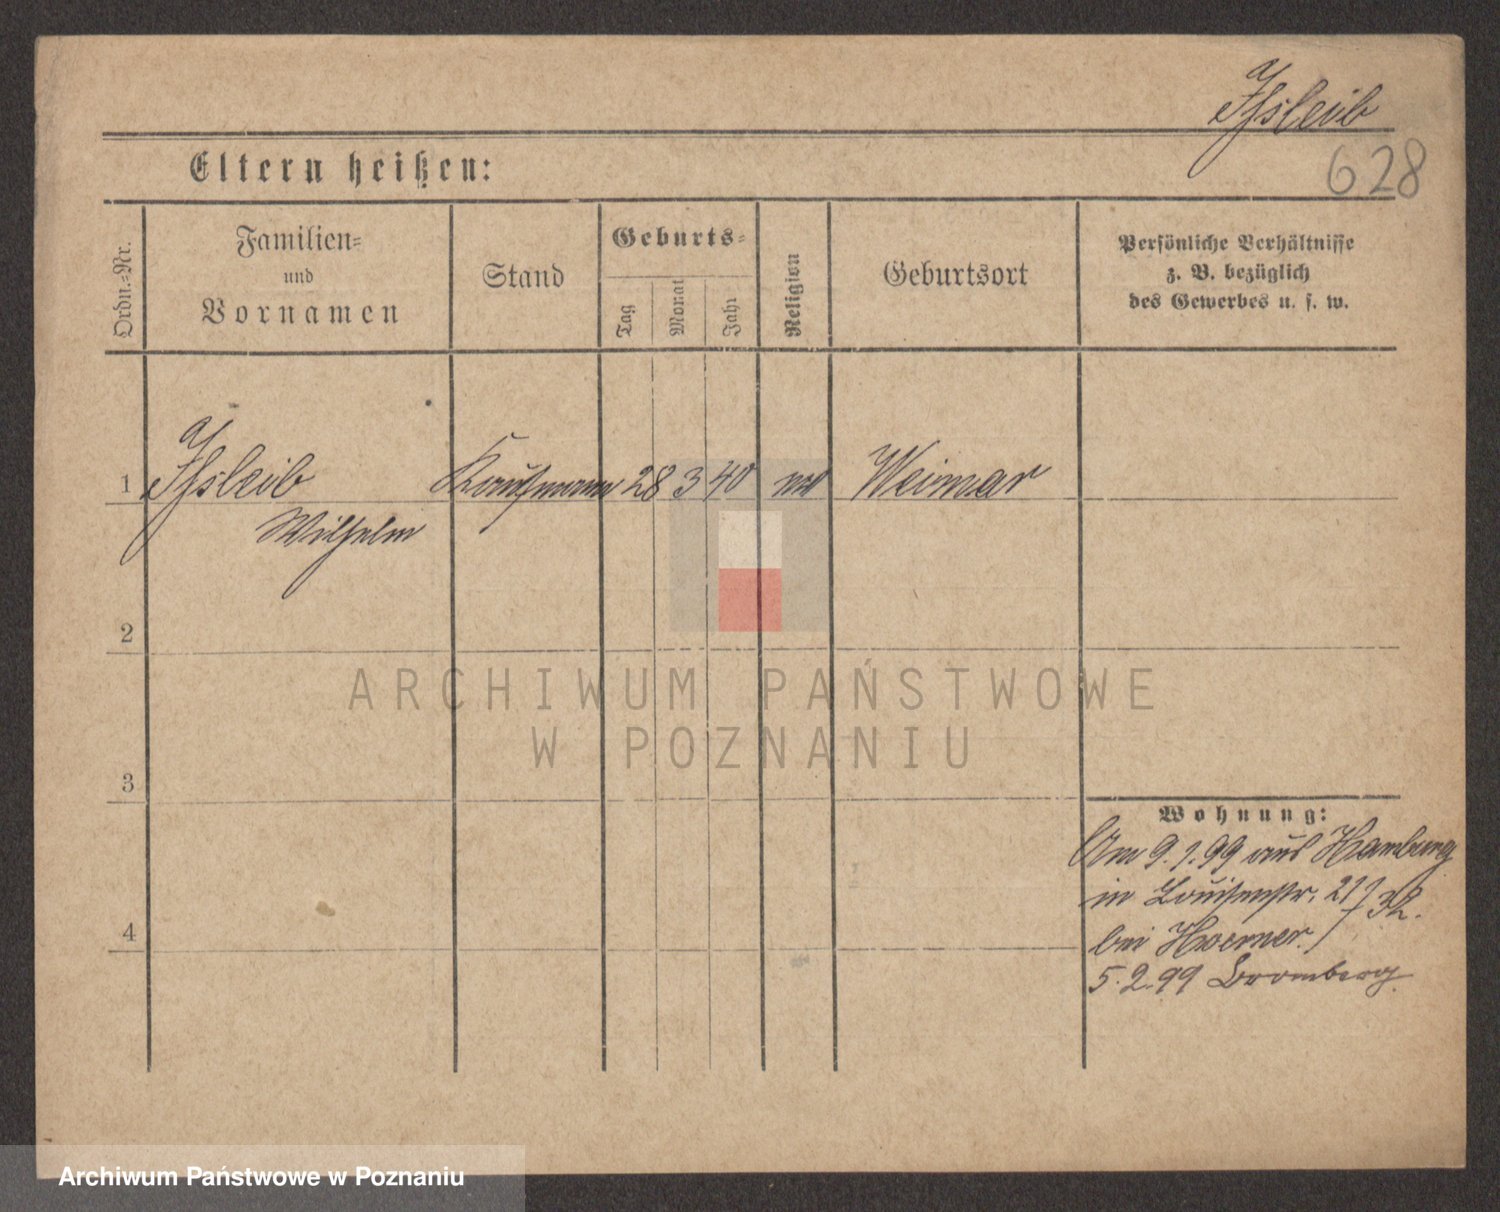 Ihsleib
628
Eltern heißen:
Ordn.-Nr.
Familien-
und
Vornamen
Stand
Geburts-
Tag
Monat
Jahr
Religion
Geburtsort
Persönliche Verhältnisse
z. B. bezüglich
des Gewerbes u. s. w.
1 Ihsleib Kaufmann 28 3 40 Weimar
Wilhelm
2
3
4
Wohnung:
Am 9.1.99 aus Hamburg
in Louisenstr. 21
bei Hoerner
5.2.99 Bromberg
ARCHIWUM PAŃSTWOWE
W POZNANIU
Archiwum Państwowe w Poznaniu